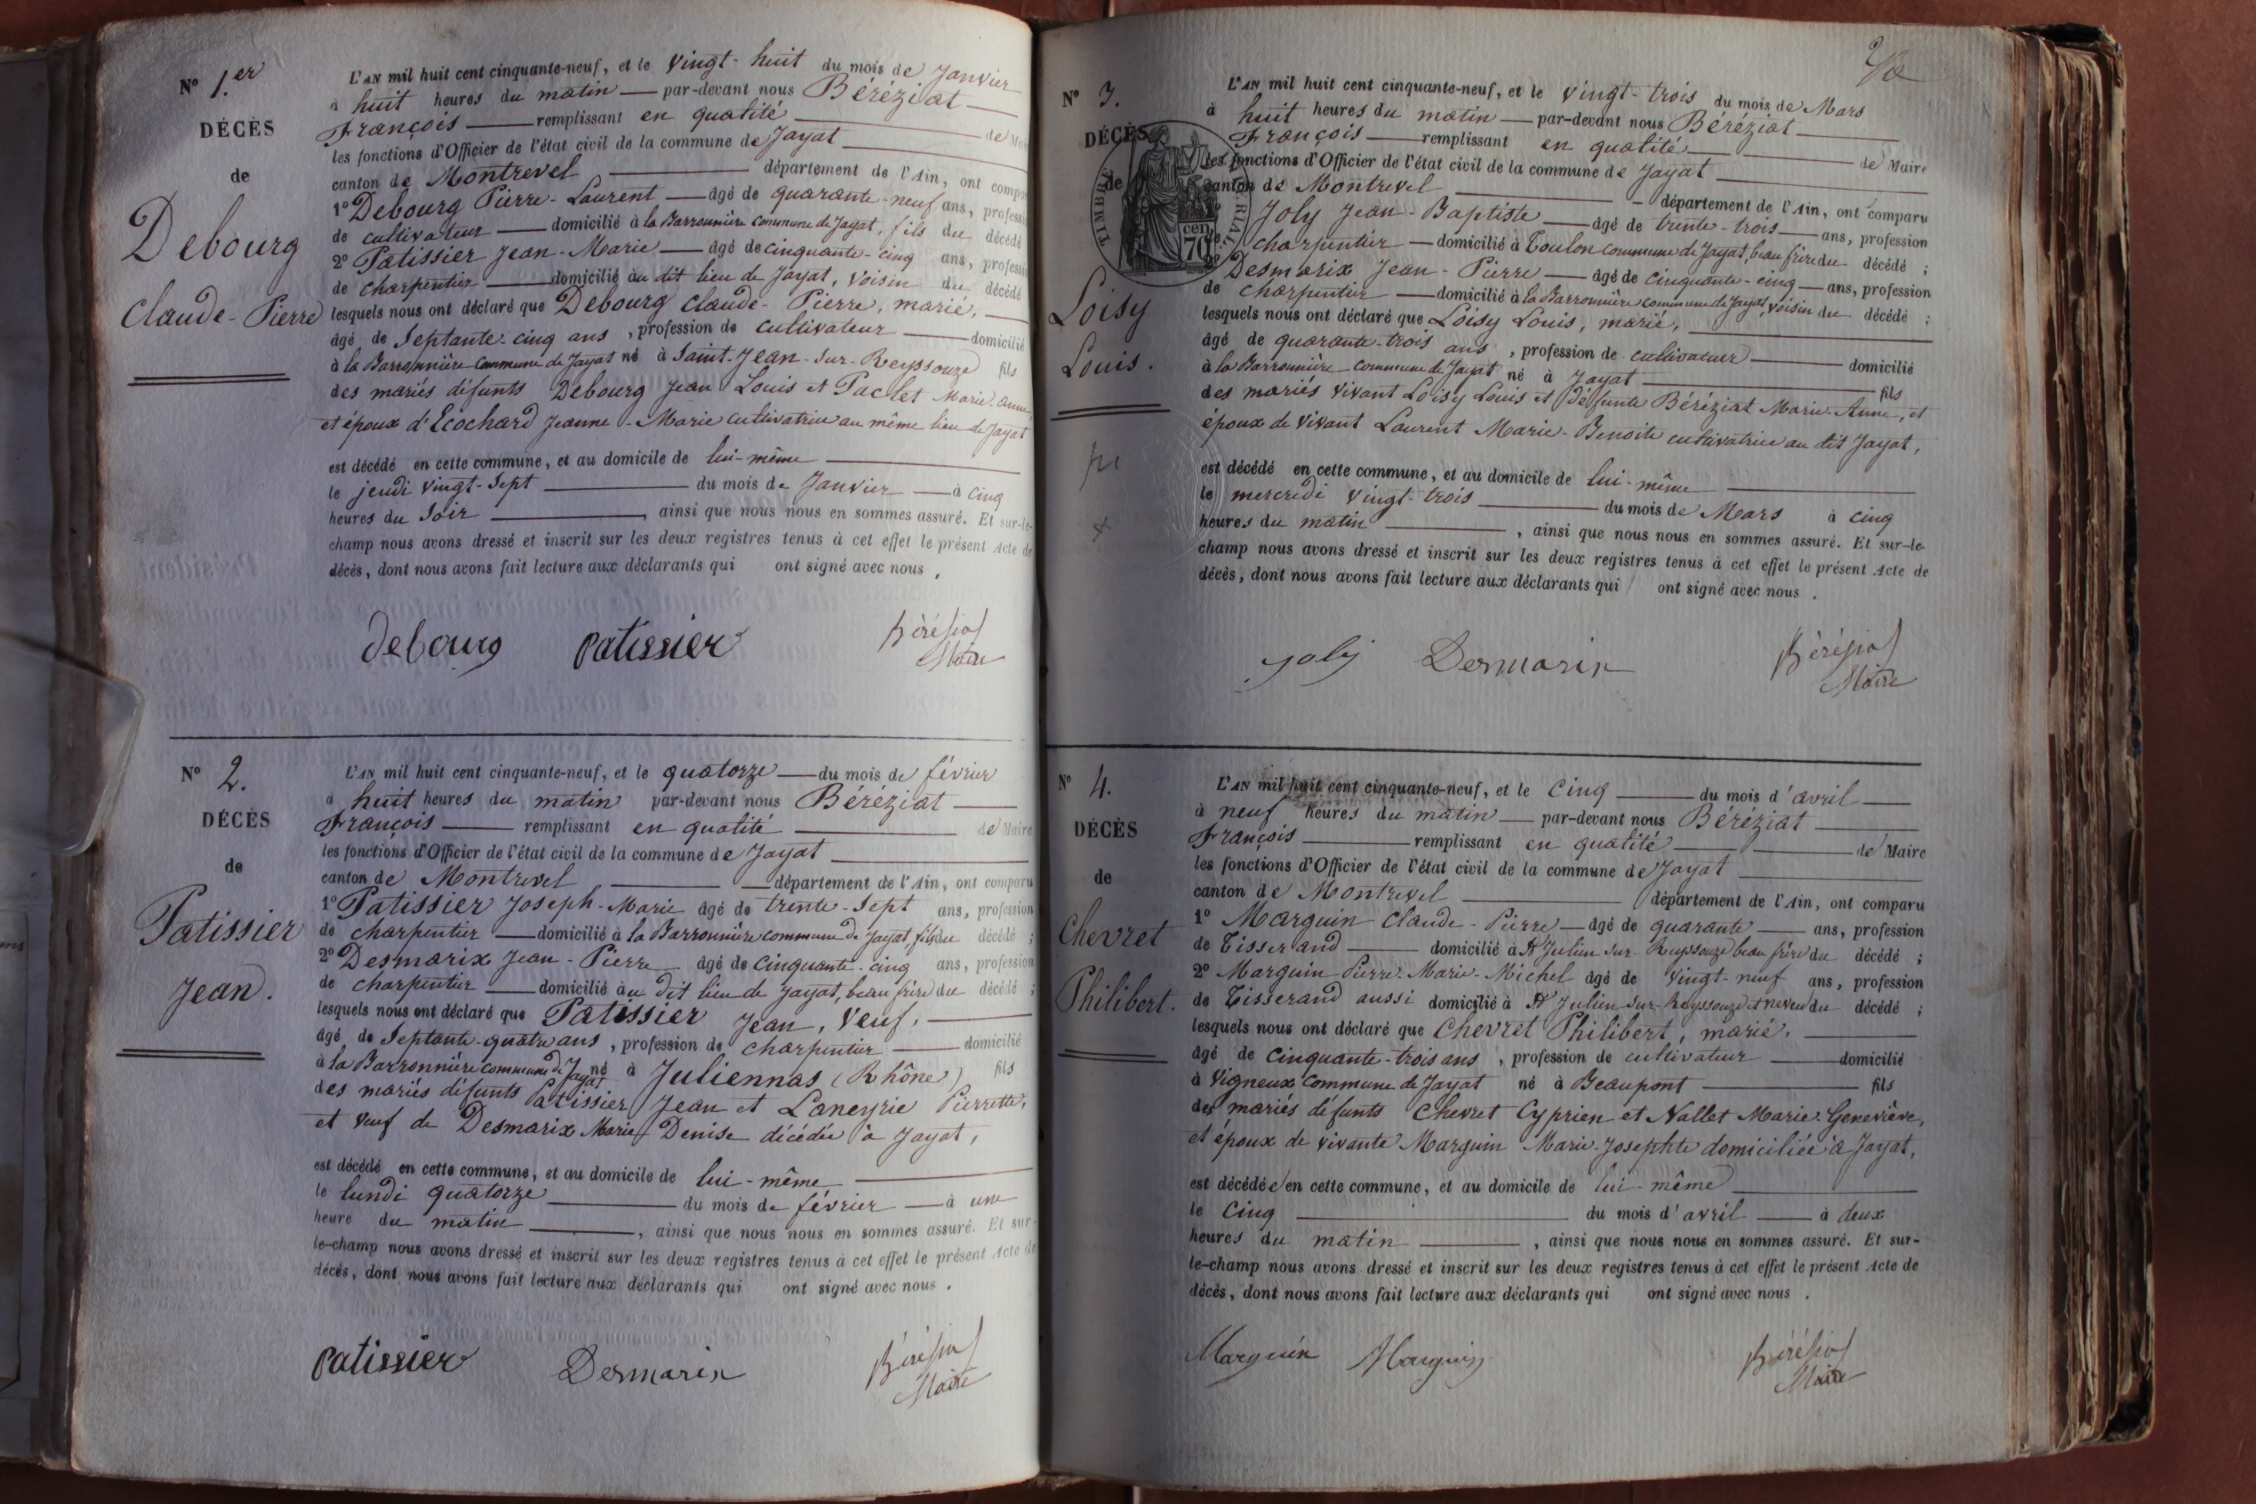 N° 1.er
DÉCÈS
de
Debourg
Claude-Pierre
L'AN mil huit cent cinquante-neuf, et le vingt-huit du mois de Janvier
à huit heures du matin par-devant nous Béréziat
François remplissant en qualité de
les fonctions d'Officier de l'état civil de la commune de Jayat
canton de Montrevel département de l'Ain, ont
1° Debourg Pierre-Laurent âgé de quarante-neuf ans, profession
de cultivateur domicilié à la Barronnière commune de Jayat, fils du décédé
2° Patissier Jean-Marie âgé de cinquante-cinq ans, profession
de charpentier domicilié au dit lieu de Jayat, voisin du décédé
lesquels nous ont déclaré que Debourg Claude-Pierre, marié,
âgé de Septante-cinq ans, profession de cultivateur domicilié
à la Barronnière commune de Jayat né à Saint-Jean-Sur-Reyssouze fils
des mariés défunts Debourg Jean Louis et Paclet Marie-Anne
et époux d'Ecochard Jeanne-Marie cultivatrice au même lieu de Jayat
est décédé en cette commune, et au domicile de lui-même
le jeudi vingt-Sept du mois de Janvier à cinq
heures du Soir, ainsi que nous nous en sommes assuré. Et sur-le-
champ nous avons dressé et inscrit sur les deux registres tenus à cet effet le présent Acte de
décès, dont nous avons fait lecture aux déclarants qui ont signé avec nous.
debourg patissier Béréziat
Maire
N° 2.
DÉCÈS
de
Patissier
Jean.
L'AN mil huit cent cinquante-neuf, et le quatorze du mois de février
à huit heures du matin par-devant nous Béréziat
François remplissant en qualité de Maire
les fonctions d'Officier de l'état civil de la commune de Jayat
canton de Montrevel département de l'Ain, ont comparu
1° Patissier Joseph-Marie âgé de trente-Sept ans, profession
de charpentier domicilié à la Barronnière commune de Jayat, fils du décédé ;
2° Desmarix Jean-Pierre âgé de cinquante-cinq ans, profession
de charpentier domicilié au dit lieu de Jayat, beau frère du décédé ;
lesquels nous ont déclaré que Patissier Jean, Veuf,
âgé de Septante-quatre ans, profession de charpentier domicilié
à la Barronnière commune de Jayat né à Juliennas (Rhône) fils
des mariés défunts Patissier Jean et Laneyrie Pierrette,
et veuf de Desmarix Marie Denise décédée à Jayat,
est décédé en cette commune, et au domicile de lui-même
le lundi quatorze du mois de février à une
heure du matin, ainsi que nous nous en sommes assuré. Et sur-
le-champ nous avons dressé et inscrit sur les deux registres tenus à cet effet le présent Acte de
décès, dont nous avons fait lecture aux déclarants qui ont signé avec nous.
patissier Desmarix Béréziat
Maire
N° 3.
DÉCÈS
de
Loisy
Louis.
TIMBRE
cen
70
L'AN mil huit cent cinquante-neuf, et le vingt-trois du mois de Mars
à huit heures du matin par-devant nous Béréziat
François remplissant en qualité de Maire
les fonctions d'Officier de l'état civil de la commune de Jayat
canton de Montrevel département de l'Ain, ont comparu
Joly Jean-Baptiste âgé de trente-trois ans, profession
charpentier domicilié à Toulon commune de Jayat, beau frère du décédé ;
2° Desmarix Jean-Pierre âgé de cinquante-cinq ans, profession
de charpentier domicilié à la Barronnière commune de Jayat, voisin du décédé ;
lesquels nous ont déclaré que Loisy Louis, marié,
âgé de quarante-trois ans, profession de cultivateur domicilié
à la Barronnière commune de Jayat né à Jayat fils
des mariés vivant Loisy Louis et défunte Béréziat Marie-Anne, et
époux de vivant Laurent Marie-Benoite cultivatrice au dit Jayat,
est décédé en cette commune, et au domicile de lui-même
le mercredi vingt-trois du mois de Mars à cinq
heures du matin, ainsi que nous nous en sommes assuré. Et sur-le-
champ nous avons dressé et inscrit sur les deux registres tenus à cet effet le présent Acte de
décès, dont nous avons fait lecture aux déclarants qui ont signé avec nous.
joly Desmarix Béréziat
Maire
N° 4.
DÉCÈS
de
Chevret
Philibert.
L'AN mil huit cent cinquante-neuf, et le cinq du mois d'avril
à neuf heures du matin par-devant nous Béréziat
François remplissant en qualité de Maire
les fonctions d'Officier de l'état civil de la commune de Jayat
canton de Montrevel département de l'Ain, ont comparu
1° Marguin Claude-Pierre âgé de quarante ans, profession
de Tisserand domicilié à St Julien sur-Reyssouze beau frère du décédé ;
2° Marguin Pierre-Marie-Michel âgé de vingt-neuf ans, profession
de Tisserand aussi domicilié à St Julien sur-Reyssouze et neveu du décédé ;
lesquels nous ont déclaré que Chevret Philibert, marié,
âgé de cinquante-trois ans, profession de cultivateur domicilié
à Vigneux commune de Jayat né à Beaupont fils
des mariés défunts Chevret Cyprien et Nallet Marie-Geneviève,
et époux de vivante Marguin Marie-Josephte domiciliée à Jayat,
est décédé en cette commune, et au domicile de lui-même
le cinq du mois d'avril à deux
heures du matin, ainsi que nous nous en sommes assuré. Et sur-
le-champ nous avons dressé et inscrit sur les deux registres tenus à cet effet le présent Acte de
décès, dont nous avons fait lecture aux déclarants qui ont signé avec nous.
Marguin Marguin Béréziat
Maire